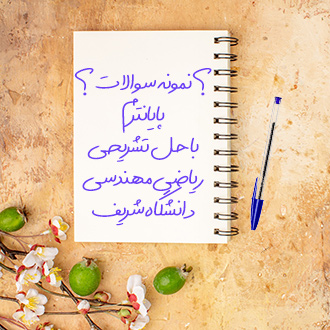 ؟ نمونه سوالات ؟
پایانترم
با حل تشریحی
ریاضی مهندسی
دانشگاه شریف